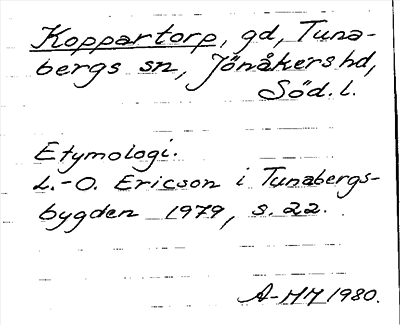 Koppartorp, gd, Tuna-
bergs sn, Jönåkers hd,
Söd. l.
Etymologi.
L.-O. Ericson i Tunabergs-
bygden 1979, s. 22.
A-MH 1980.